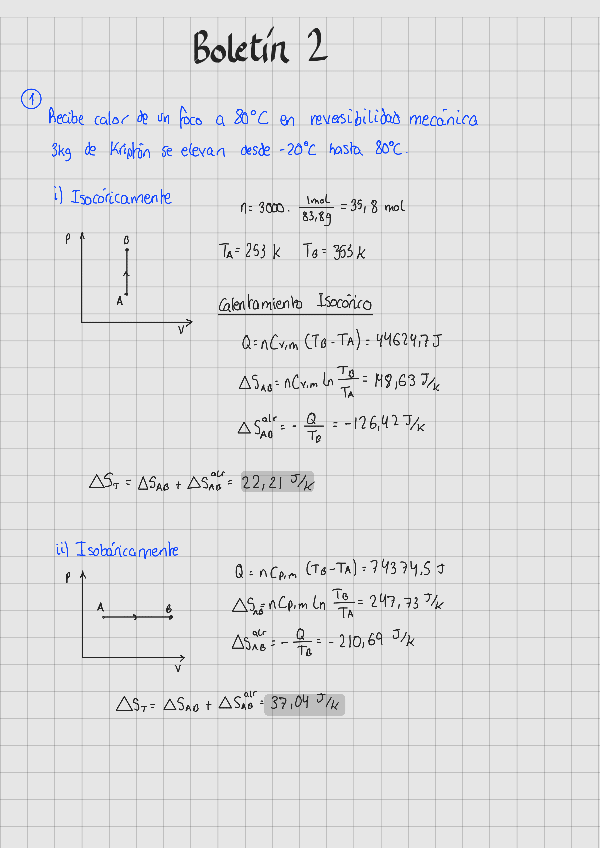 Boletín 2
1
Recibe calor de un foco a 80°C en reversibilidad mecánica
3kg de Kriptón se elevan desde -20°C hasta 80°C.
i) Isocóricamente
n = 3000 · 1mol / 83,8g = 35,8 mol
P
B
A
V
T_A = 253 k T_B = 353 k
Calentamiento Isocórico
Q = nC_V,m (T_B - T_A) = 44624,7 J
ΔS_AB = nC_V,m ln T_B / T_A = 148,63 J/k
ΔS_AB^alr = - Q / T_B = -126,42 J/k
ΔS_T = ΔS_AB + ΔS_AB^alr = 22,21 J/k
ii) Isobáricamente
P
A B
V
Q = nC_P,m (T_B - T_A) = 74374,5 J
ΔS_AB = nC_P,m ln T_B / T_A = 247,73 J/k
ΔS_AB^alr = - Q / T_B = - 210,69 J/k
ΔS_T = ΔS_AB + ΔS_AB^alr = 37,04 J/k